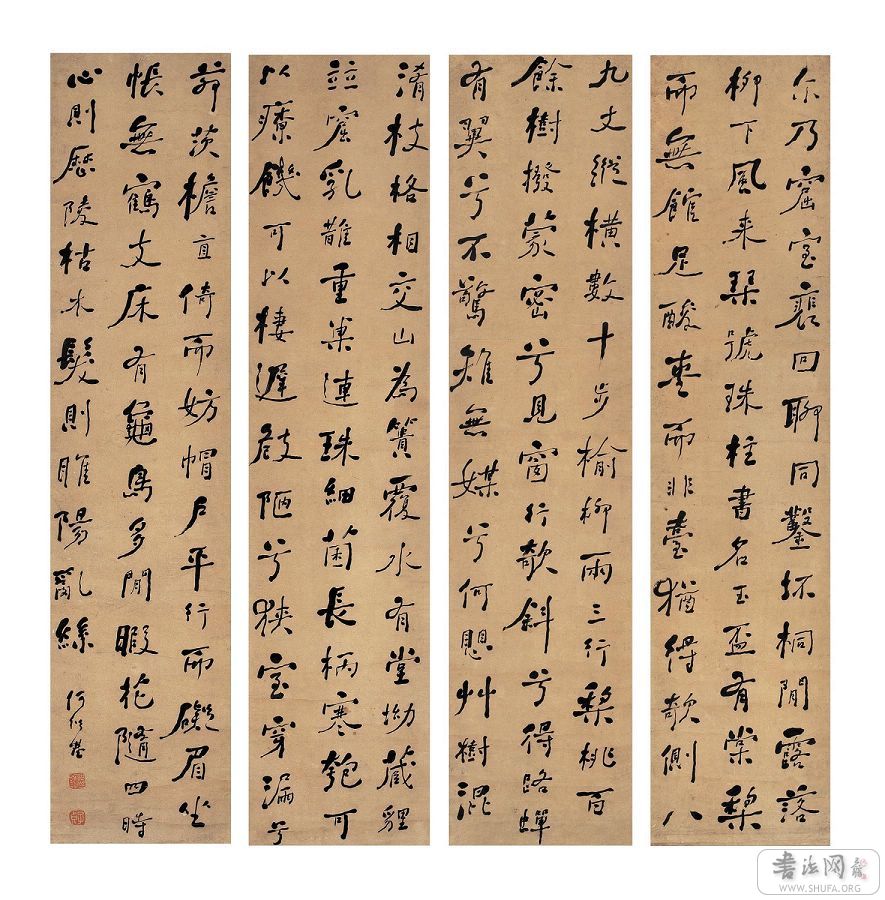 尒乃窟室裵回聊同鑿坏桐間露落
柳下風来琹號珠柱書名玉盃有棠棃
而無館足酸棗而非臺猶得欹側八
九丈縱橫數十步榆柳兩三行棃桃百
餘樹撥蒙密兮見窗行欹斜兮得路蟬
有翳兮不驚雉無媒兮何愳艸樹混
淆枝格相交山為簣覆水有堂坳藏貍
竝窟乳鵲重巢連珠細菌長柄寒匏可
以療饑可以棲遲攲陋兮狹室穿漏兮
茆茨檐直倚而妨帽戶平行而礙眉坐
帳無鶴支床有龜鳥多閒暇花隨四時
心則歷陵枯木髮則睢陽亂絲
何紹基
書法网
WWW.SHUFA.ORG